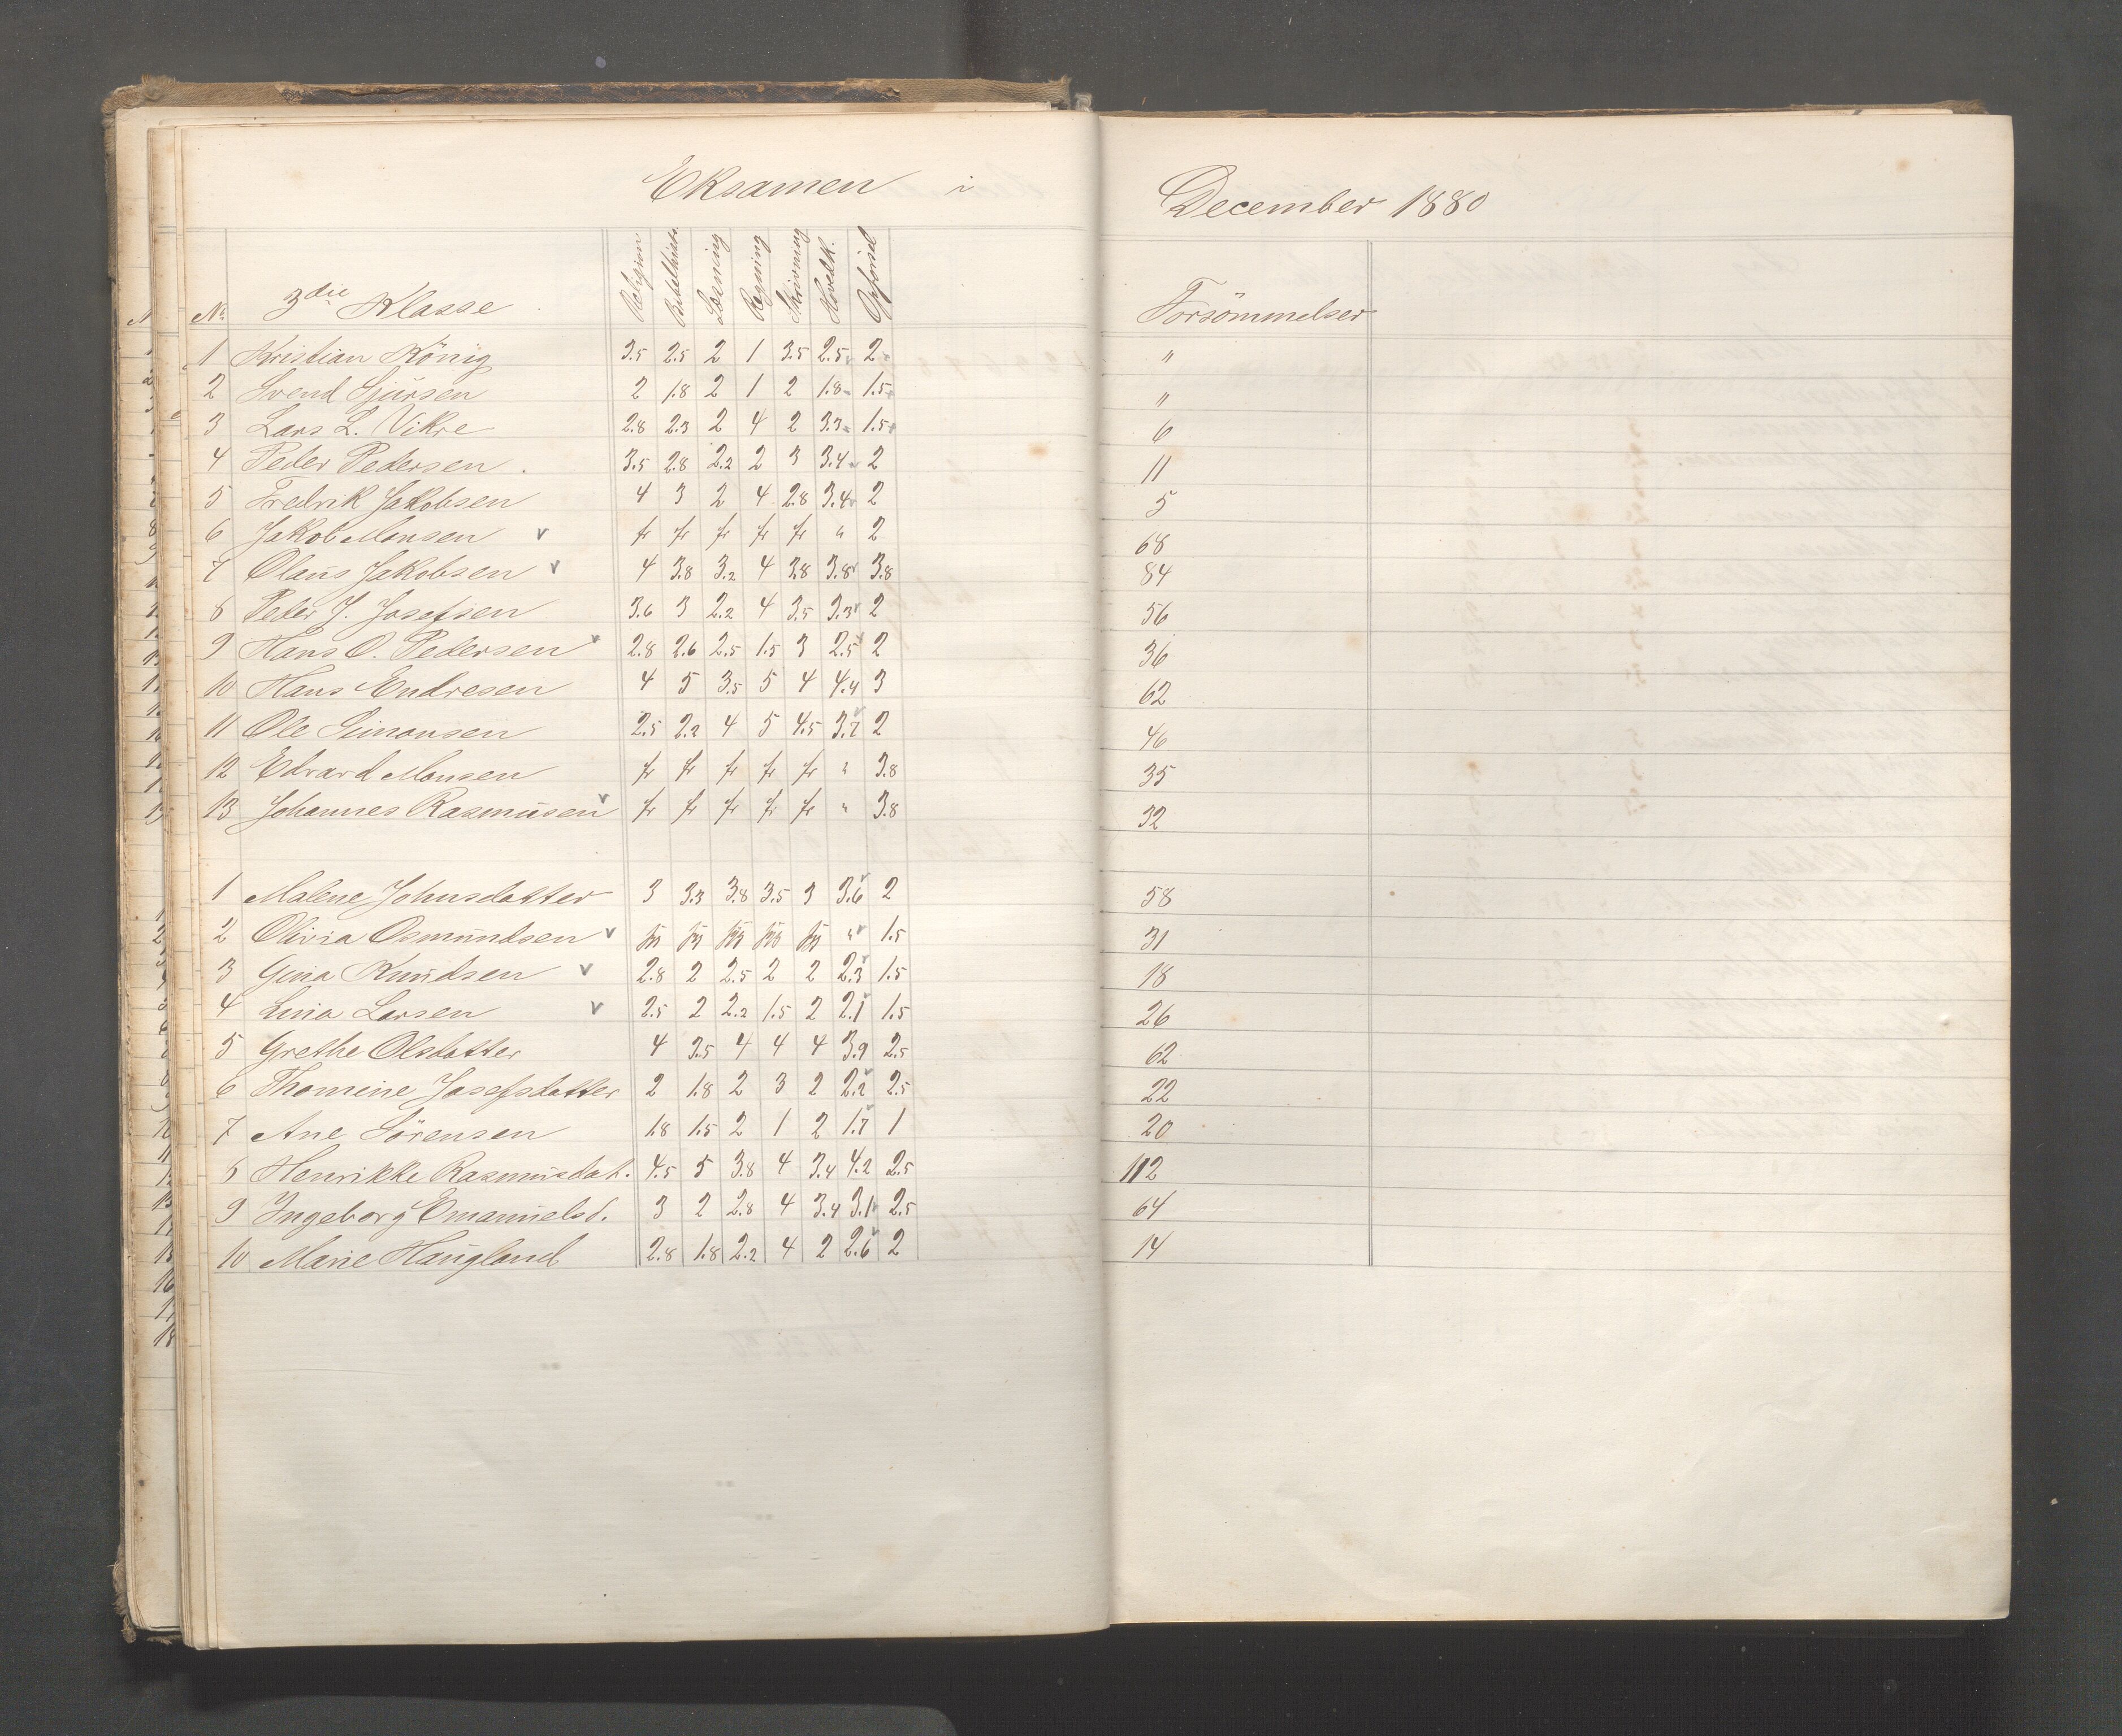 Eksamen i December 1880
No 3die Klasse Religion Læsning Regning Skrivning Hovedk. Opførsel Forsömmelser
1 Kristian König 3.5 2.5 2 1 3.5 2.5 2 "
2 Svend Sjursen 2 1.8 2 1 2 1.8 1.5 "
3 Lars L. Vikre 2.8 2.3 2 4 2 3.3 1.5 6
4 Peder Pedersen. 3.5 2.8 2.2 2 3 3.4 2 11
5 Fredrik Jakobsen 4 3 2 4 2.8 3.4 2 5
6 Jakob Monsen v fr fr fr fr fr " 2 68
7 Olaus Jakobsen v 4 3.8 3.2 4 3.8 3.8 3.8 84
8 Peder J. Josefsen 3.6 3 2.2 4 3.5 3.3 2 56
9 Hans O. Pedersen v 2.8 2.6 2.5 1.5 3 2.5 2 36
10 Hans Endresen 4 5 3.5 5 4 4.4 3 62
11 Ole Simonsen 2.5 2.2 4 5 4.5 3.7 2 46
12 Edvard Monsen fr fr fr fr fr " 3.8 35
13 Johannes Rasmusen v fr fr fr fr fr " 3.8 32
1 Malene Johnsdatter 3 3.3 3.8 3.5 3 3.6 2 58
2 Olivia Osmundsen v " 1.5 31
3 Gina Knudsen v 2.8 2 2.5 2 2 2.3 1.5 18
4 Lina Larsen v 2.5 2 2.2 1.5 2 2.1 1.5 26
5 Grethe Olsdatter 4 3.5 4 4 4 3.9 2.5 62
6 Thomine Josefsdatter 2 1.8 2 3 2 2.2 2.5 22
7 Ane Sörensen 1.8 1.5 2 1 2 1.7 1 20
8 Henrikke Rasmusdat. 4.5 5 3.8 4 3.4 4.2 2.5 112
9 Ingeborg Emanuelsd. 3 2 2.8 4 3.4 3.1 2.5 64
10 Marie Haugland 2.8 1.8 2.2 4 2 2.6 2 14